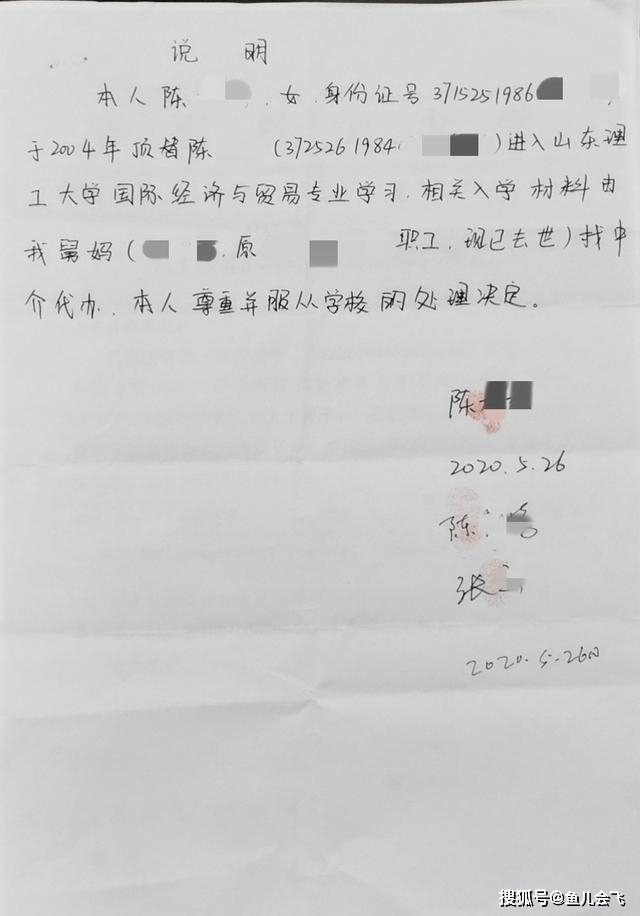 说 明
本人陈 ，女，身份证号 3715251986 ，
于2004年顶替陈 (3725261984 )进入山东理
工大学国际经济与贸易专业学习，相关入学材料由
我舅妈( ，原 职工，现已去世)找中
介代办，本人尊重并服从学校的处理决定。
陈
2020.5.26
陈
张
2020.5.26日
搜狐号@鱼儿会飞